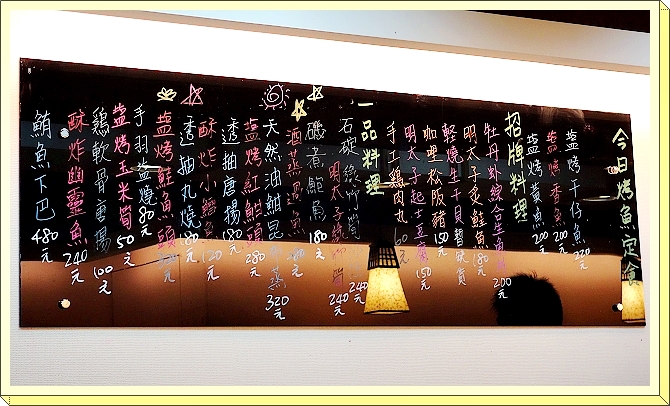 今日烤魚定食
盐烤午仔魚 220元
盐烤香魚 200元
盐烤黃魚 200元
招牌料理
牡丹虾綜合生魚片 200元
明太子炙鮭魚 180元
輕燒生干貝 暫缺貨
咖哩松阪豬 150元
明太子起士豆腐 150元
手工鷄肉丸
一品料理
明太子 240元
磯煮鮑魚 180元
酒蒸
天然油魽昆布蒸 320元
盐烤紅魽頭 280元
透抽唐揚 180元
酥炸小 120元
透抽丸燒 180元
盐烤鮭魚頭
手羽盐燒 80元
盐烤玉米筍 50元
鷄軟骨唐揚 100元
酥炸幽靈魚 240元
鮪魚下巴 480元